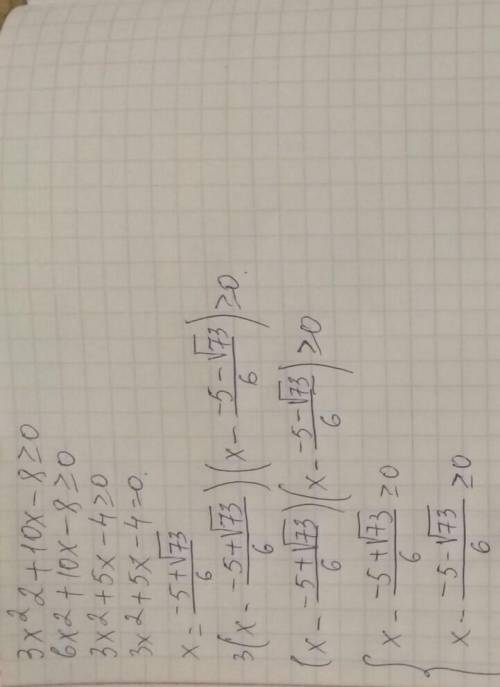 3x²2+10x-8≥0
6x2+10x-8≥0
3x2+5x-4≥0
3x2+5x-4=0.
x = (-5+√73)/6
3(x - (-5+√73)/6)(x - (-5-√73)/6)≥0.
(x - (-5+√73)/6)(x - (-5-√73)/6)≥0
{ x - (-5+√73)/6 ≥0
x - (-5-√73)/6 ≥0